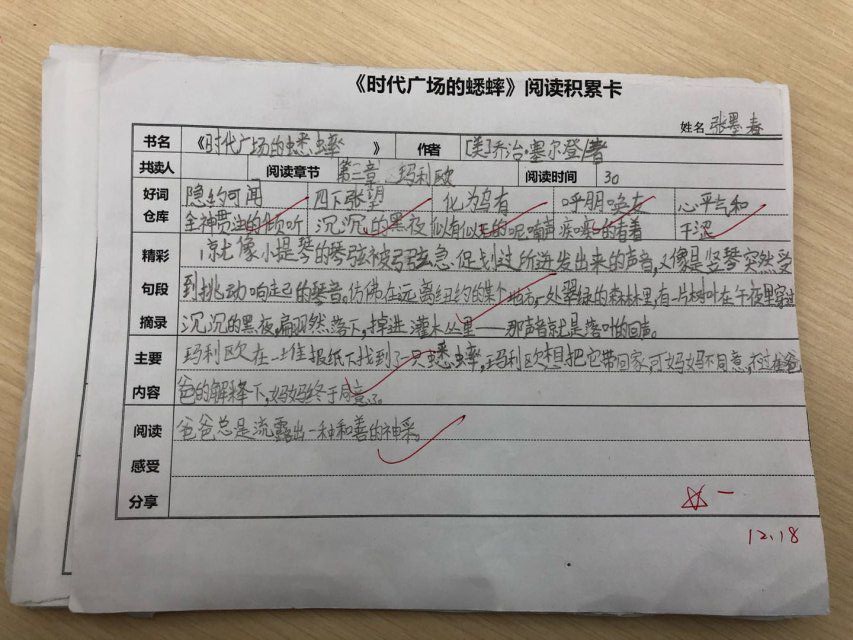 《时代广场的蟋蟀》阅读积累卡
姓名 张墨春
书名 《时代广场的蟋蟀 》 作者 [美]乔治·塞尔登/著
共读人 阅读章节 第三章 玛利欧 阅读时间 30
好词 隐约可闻 四下张望 化为乌有 呼朋唤友 心平气和
仓库 全神贯注的倾听 沉沉的黑夜 似有似无的呢喃声 干涩
精彩 就像小提琴的琴弦被弓弦急促划过所迸发出来的声音,又像是竖琴突然受
句段 到挑动响起的琴音。仿佛在远离纽约的某个地方,处翠绿的森林里,有一片树叶在午夜里穿过
摘录 沉沉的黑夜,扁羽然落下,掉进灌木丛里——那声音就是落叶的回声。
主要 玛利欧在一堆报纸下找到了一只蟋蟀,玛利欧想把它带回家,可妈妈不同意,不过在爸
内容 爸的解释下,妈妈终于同意了。
阅读 爸爸总是流露出一种和善的神采。
感受
分享
12.18